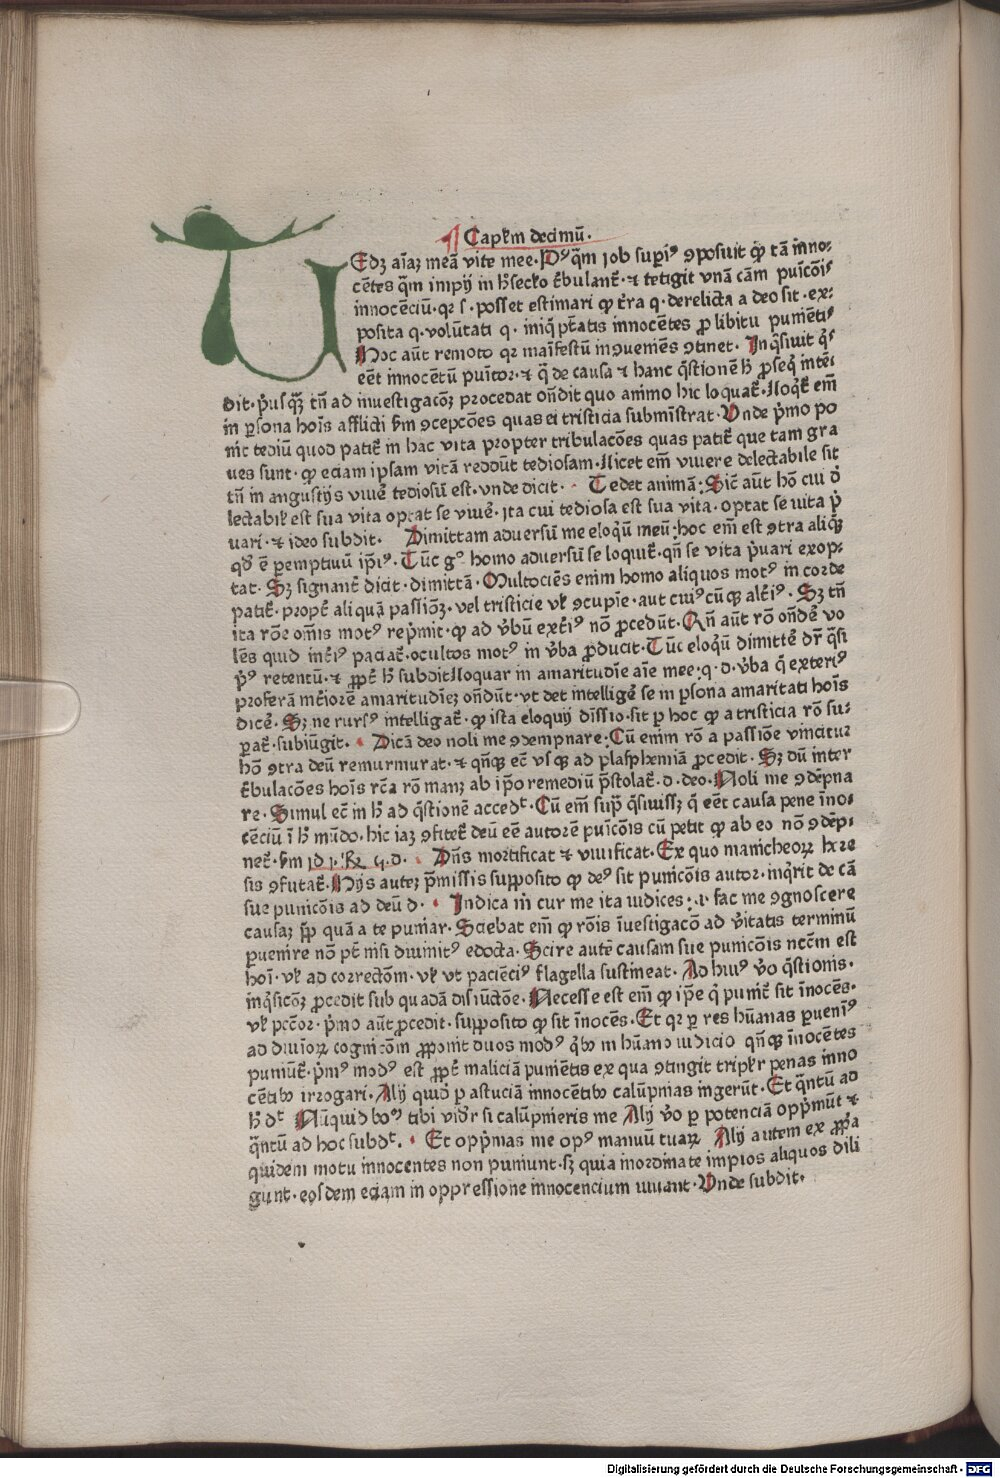 ¶ Capľm decimū.
TEdꝫ aīaꝫ meā vite mee. Pꝰq̄m iob suꝑiꝰ ꝯposuit ꝙ tā īno-
cētes q̄m impij in h̄ seclo t̄bulant̄. ⁊ tetigit vnā cām puīcōis
innocēciū. qꝛ s. posset estimari ꝙ t̄ra q. derelicta a deo sit. ex-
posita q. volūtati q. iniq̄ pt̄atis innocētes ꝓ libitu puniētiꝰ
Hoc aūt remoto qꝛ maīfestū incuueniēs ꝯtinet. Inq̄siuit qͥs
eēt innocētū puītor. ⁊ q̄ de causa ⁊ hanc q̄stionē h̄ ꝓseqͥ intē-
dit. pͥusqꝫ tn̄ ad inuestigacōꝫ procedat on̄dit quo animo hic loquat̄. Loqt̄ em̄
in ꝑsona hoīs afflicti ẜm ꝯcepcōes quas ei tristicia subministrat. Vnde pͥmo po
nit tediū quod patit̄ in hac vita propter tribulacōes quas patit̄ que tam gra
ues sunt. ꝙ eciam ipsam vitā reddūt tediosam. Licet em̄ viuere delectabile sit
tn̄ in angustijs viuē tediosū est. vnde dicit. Tedet animā: Sic̄ aūt hō cui d̄
lectabiľ est sua vita optat se viuē. ita cui tediosa est sua vita. optat se uita pͥ
uari. ⁊ ideo subdit. Dimittam aduersū me eloqͥū meū: hoc em̄ est ꝯtra aliqͥ
qd̄ ē ꝑemptiuū ip̄iꝰ. Tūc gͦ homo aduersū se loquit̄. qn̄ se vita pͥuari exop-
tat. Sꝫ signant̄ dicit. dimittā. Multociēs enim homo aliquos motꝰ in corde
patit̄. propt̄ aliquā passiōꝫ. vel tristicie vľ ꝯcupīe. aut cuiꝰcūqꝫ alt̄iꝰ. Sꝫ tn̄
ita rōe om̄is motꝰ rep̄mit. ꝙ ad v̄bū ext̄iꝰ nō ꝓcedūt. Qn̄ aūt rō on̄dē vo
lēs quid int̄iꝰ paciat̄. ocultos motꝰ in v̄ba ꝓducit. Tūc eloqͥū dimittē dr̄ q̄si
pͥꝰ retentū. ⁊ ꝓpt̄ h̄ subdit Loquar in amaritudīe aīe mee: q. d. v̄ba q̄ exteriꝰ
proferā īt̄iorē amaritudīeꝫ on̄dūt. vt det intelligē se in ꝑsona amaritati hoīs
dicē. Sꝫ ne rursꝰ intelligat̄. ꝙ ista eloquij dīssio. sit ꝑ hoc ꝙ a tristicia rō su-
ꝑat̄. subiūgit. Dicā deo noli me ꝯdempnare: Cū enim rō a passiōe vincitur
hō ꝯtra deū remurmurat. ⁊ qn̄qꝫ ec̄ vsqꝫ ad ꝑlasphemiā ꝓcedit. Sꝫ dū inter
t̄bulacōes hoīs rc̄a rō manꝫ ab ip̄o remediū p̄stolat̄. d. deo. Noli me ꝯdēpna
re. Simul ec̄ in h̄ ad q̄stionē accedᵗ. Cū em̄ supͣ q̄siuissꝫ q̄ eēt causa pene īno-
cēciū ī h̄ mūdo. hic iaꝫ ꝯfitet̄ deū eē autorē puīcōis cū petit ꝙ ab eo nō ꝯdēp-
net̄. ẜm id Dn̄s mortificat ⁊ viuificat. Ex quo manicheoꝝ here
sis ꝯfutat̄. Hijs auteꝫ p̄missis supposito ꝙ deꝰ sit punicōis autor. inqͥrit de cā
sue punicōis ad deū d. Indica m̄ cur me ita iudices: .i. fac me ꝯgnoscere
causaꝫ ꝓp̄ quā a te puniar. Sciebat em̄ ꝙ rōis īuestigacō ad v̄itatis terminū
ꝑuenire nō pt̄ nisi diuinitꝰ edocta. Scire autē causam sue punicōis nccm est
hoī. vľ ad correctōm. vľ vt paciēciꝰ flagella sustineat. Ad huiꝰ v̄o q̄stionis.
inqͥsicōꝫ ꝓcedit sub quadā disiūctōe. Necesse est em̄ ꝙ ip̄e qͥ punit̄ sit īnocēs.
vľ pccōr. pͥmo aūt ꝓcedit. supposito ꝙ sit īnocēs. Et qꝛ ꝑ res hūanas ꝑueniꝰ
ad diuīoꝝ cognicōm ꝓponit duos modꝰ qͥbꝫ in hūano iudicio qn̄qꝫ īnocētes
puniūt̄. pͥmꝰ modꝰ est ꝓpt̄ maliciā puniētis ex qua ꝯtingit tripľr penas inno
cētibꝫ irrogari. Alij quid̄ ꝑ astuciā innocētibꝫ calūpnias ingerūt. Et q̄ntū ad
h̄ dᵗ Nūquid boᵐ tibi vid̄r si calūpnieris me Alij v̄o ꝑ potenciā oppͥmūt ⁊
q̄ntū ad hoc subdᵗ. Et oppͥmas me opꝰ manuū tuaꝝ Alij autem ex ꝓpͥa
quidem motu innocentes non puniunt. sꝫ quia inordinate impios aliquos dili
gunt. eosdem eciam in oppressione innocencium iuuant. Vnde subdit.
Digitalisierung gefördert durch die Deutsche Forschungsgemeinschaft - DFG